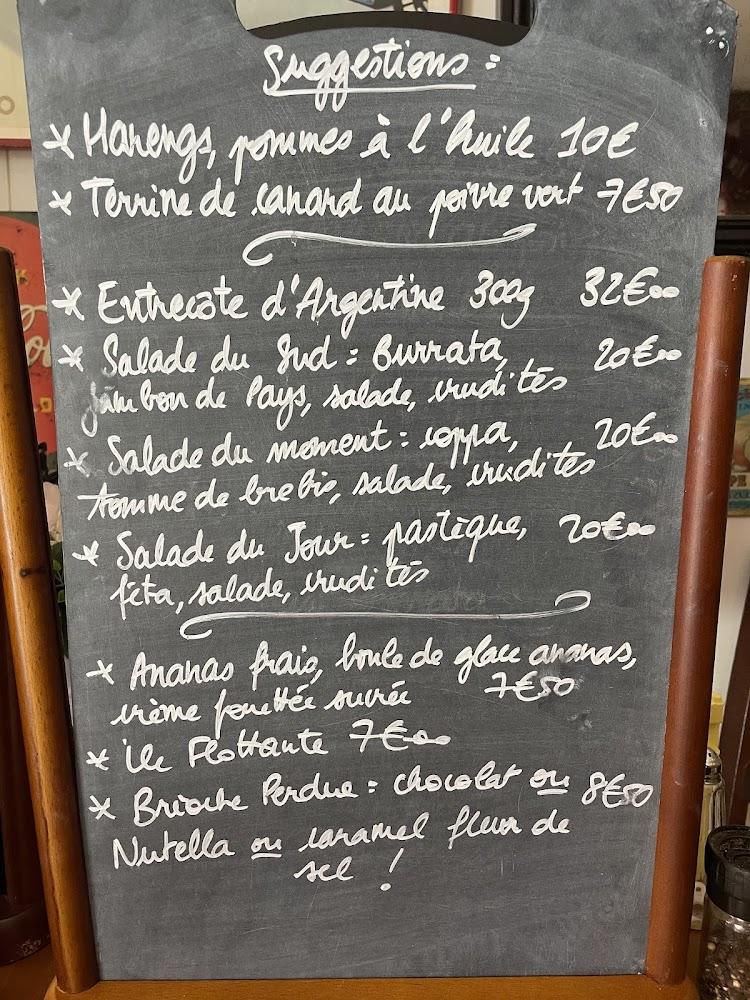 Suggestions :
* Harengs, pommes à l'huile 10€
* Terrine de canard au poivre vert 7€50
* Entrecote d'Argentine 300g 32€00
* Salade du Sud : Burrata, 20€00
jambon de Pays, salade, crudités
* Salade du moment : coppa, 20€00
tomme de brebis, salade, crudités
* Salade du Jour : pastèque, 20€00
féta, salade, crudités
* Ananas frais, boule de glace ananas,
crème fouettée sucrée 7€50
* île Flottante 7€00
* Brioche Perdue : chocolat ou 8€50
Nutella ou caramel fleur de
sel !